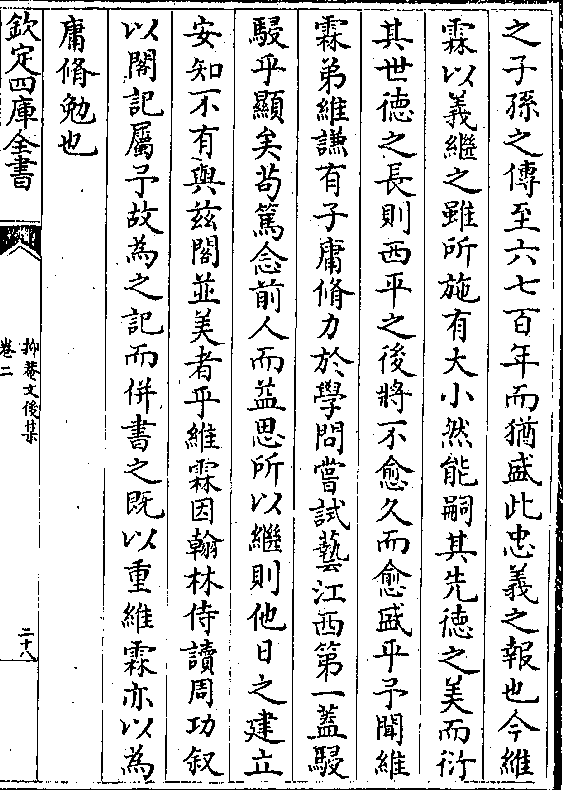 之子孫之傳至六七百年而猶盛此忠義之報也今維
霖以義繼之雖所施有大小然能嗣其先徳之美而衍
其世徳之長則西平之後將不愈久而愈盛乎予聞維
霖弟維謙有子庸脩力於學問嘗試藝江西第一蓋駸
駸乎顯矣苟篤念前人而益思所以繼則他日之建立
安知不有與兹閣並美者乎維霖因翰林侍讀周功叙
以閣記屬予故為之記而併書之既以重維霖亦以為
庸脩勉也
欽定四庫全書
抑菴文後集
卷二
二十八